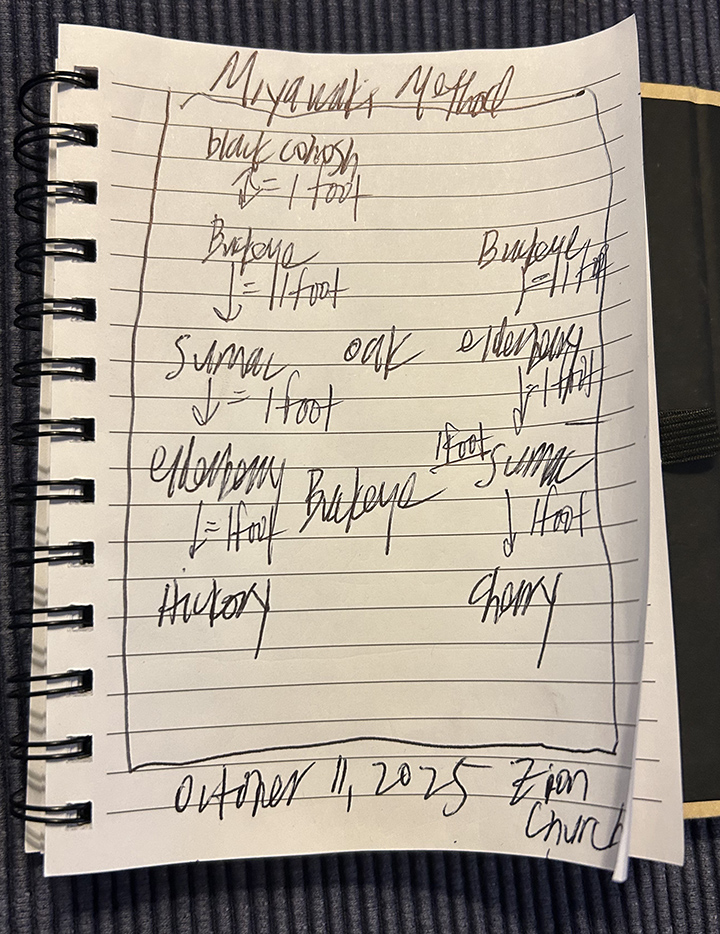 Miyawaki Method
black cohosh
= 1 foot
Buckeye Buckeye
= 1 foot = 1 foot
Sumac oak elderberry
= 1 foot = 1 foot
elderberry Buckeye 1 foot Sumac
= 1 foot 1 foot
Hickory Cherry
October 11, 2025 Zion
Church